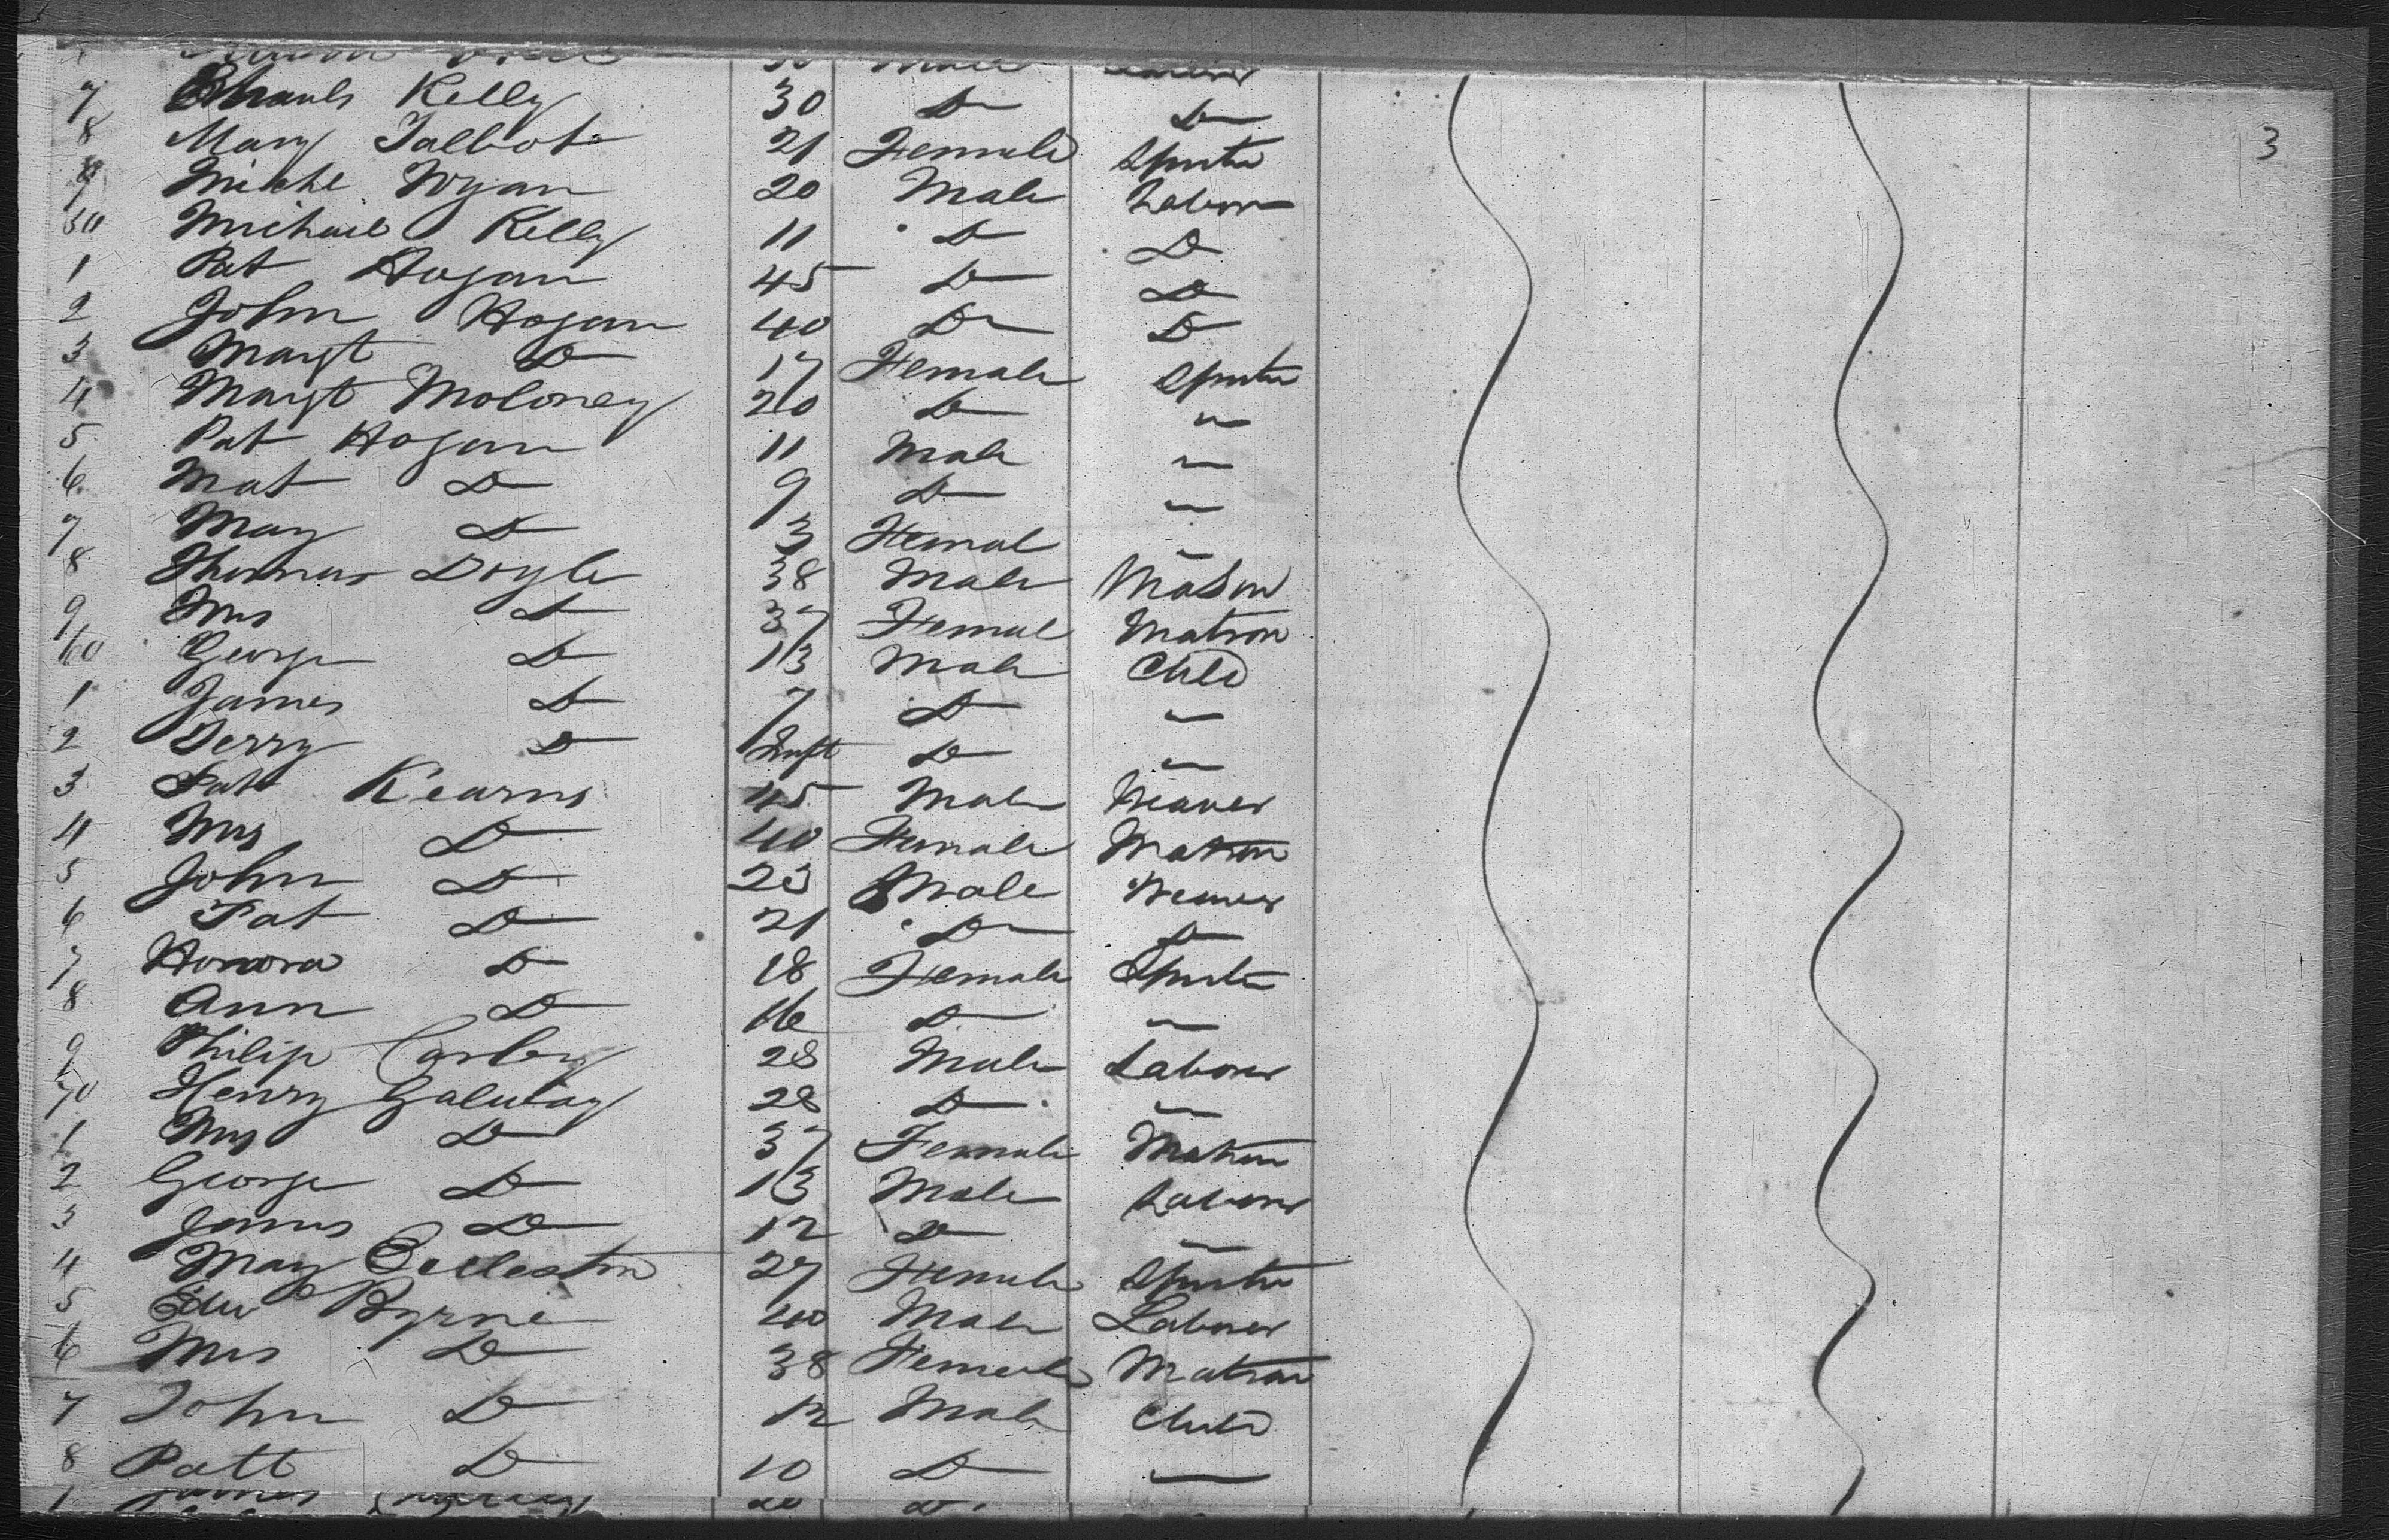 7 Charels Kelly 30 Do Do
8 Mary Talbot 21 Female Spinster 3
9 Michl Wyan 20 Male Labour
50 Michael Kelly 11 Do Do
1 Pat Hogan 45 Do Do
2 John Hogan 40 Do Do
3 Margt Do 17 Female Spinster
4 Margt Moloney 20 Do "
5 Pat Hogan 11 Male "
6 Mat Do 9 Do "
7 Mary Do 3 Femal "
8 Thomas Doyle 38 Male Mason
9 Mrs Do 37 Femal Matron
60 George Do 13 Male Child
1 James Do 7 Do "
2 Jerry Do Inft Do "
3 Patt Kearns 45 Male Weaver
4 Mrs Do 40 Female Matron
5 John Do 23 Male Weaver
6 Pat Do 21 Do Do
7 Honora Do 18 Female Spinster
8 Ann Do 16 Do "
9 Philip Corley 28 Male Laborer
70 Henry Galway 28 Do "
1 Mrs Do 37 Female Matron
2 George Do 13 Male Laborer
3 James Do 12 Do "
4 Mary Eccleston 27 Female Spinster
5 Edw Byrne 40 Male Laborer
6 Mrs Do 38 Female Matron
7 John Do 12 Male Child
8 Patt Do 10 Do "
James 20 Do